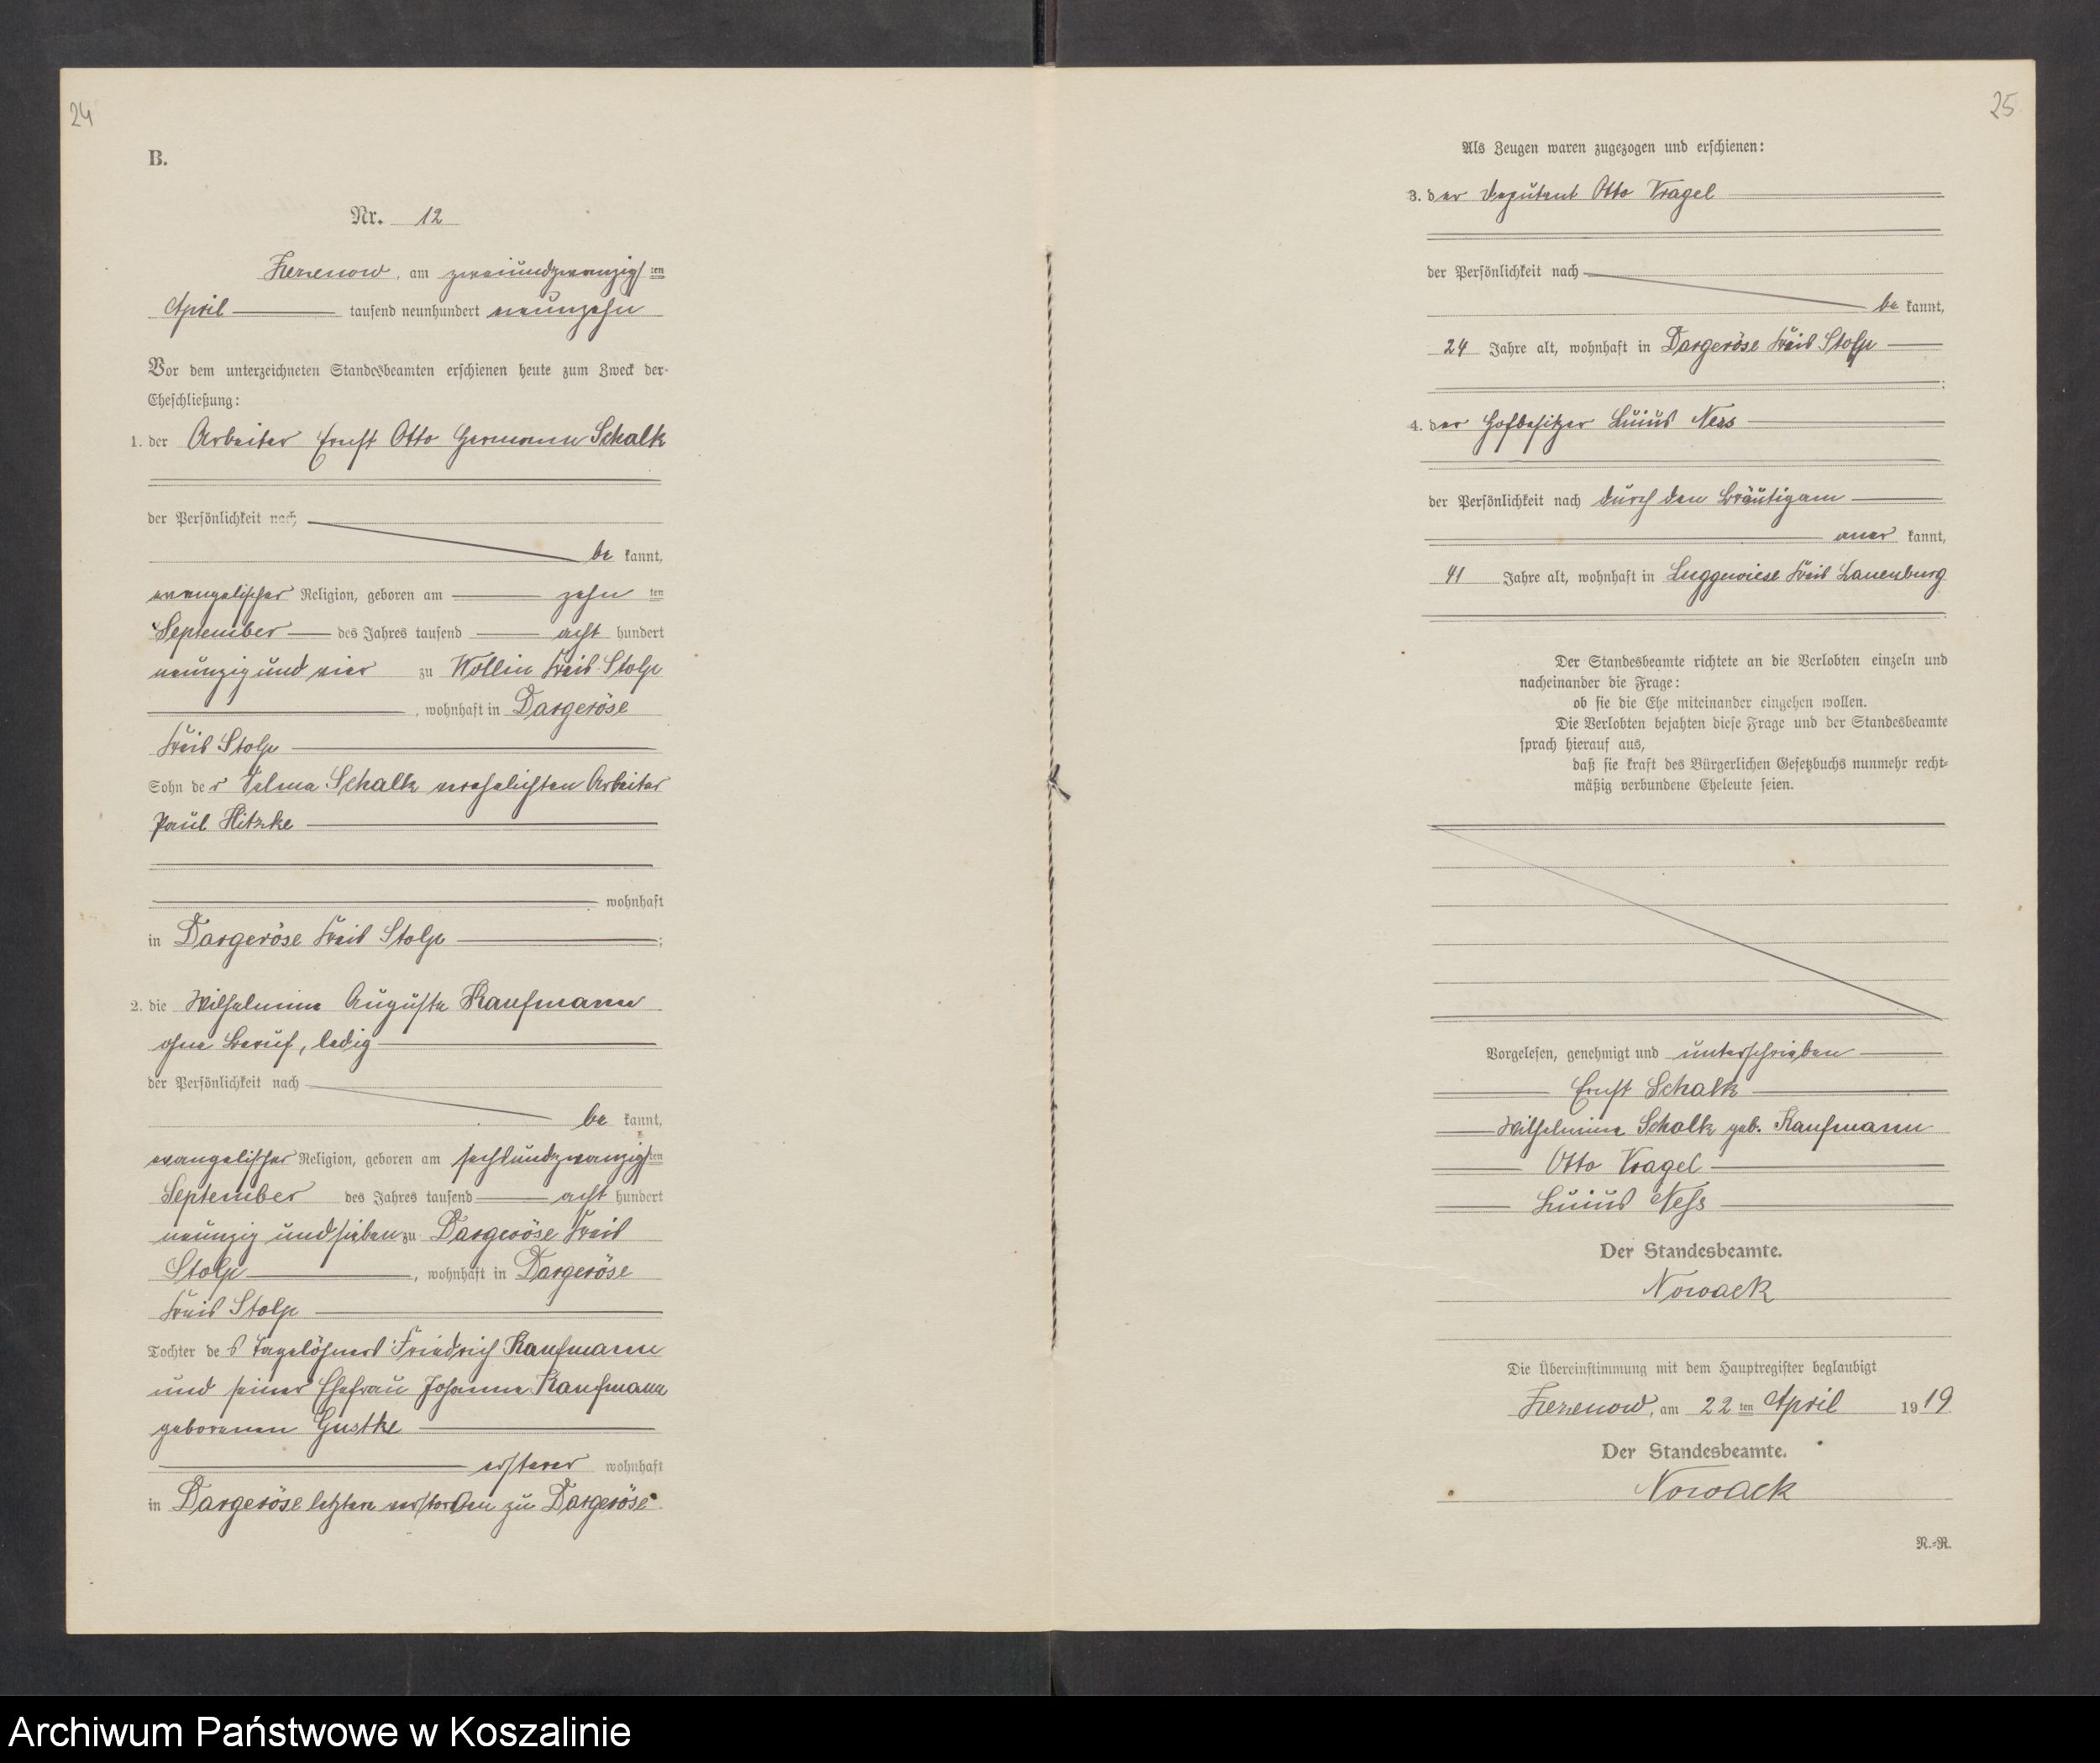 24
B.
Nr. 12
Zezenow, am zweiundzwanzigsten
April tausend neunhundert neunzehn
Vor dem unterzeichneten Standesbeamten erschienen heute zum Zweck der
Eheschließung:
1. der Arbeiter Ernst Otto Hermann Schalk
der Persönlichkeit nach
be kannt,
evangelischer Religion, geboren am zehn ten
September des Jahres tausend acht hundert
neunzig und vier zu Wollin Kreis Stolp
, wohnhaft in Dargeröse
Kreis Stolp
Sohn der Schalk verehelichten Arbeiter
Paul Hitzke
wohnhaft
in Dargeröse Kreis Stolp ;
2. die Wilhelmine Auguste Kaufmann
ohne Beruf, ledig
der Persönlichkeit nach
be kannt,
evangelischer Religion, geboren am sechsundzwanzigsten
September des Jahres tausend acht hundert
neunzig und sieben zu Dargeröse Kreis
Stolp , wohnhaft in Dargeröse
Kreis Stolp
Tochter des Tagelöhners Friedrich Kaufmann
und seiner Ehefrau Johanne Kaufmann
geborenen Gustke
ersterer wohnhaft
in Dargeröse letztere verstorben zu Dargeröse.
25
Als Zeugen waren zugezogen und erschienen:
3. der Deputant Otto Kragel
der Persönlichkeit nach
be kannt,
24 Jahre alt, wohnhaft in Dargeröse Kreis Stolp
;
4. der Hofbesitzer Ness
der Persönlichkeit nach durch den Bräutigam
aner kannt,
41 Jahre alt, wohnhaft in Luggewiese Kreis Lauenburg
Der Standesbeamte richtete an die Verlobten einzeln und
nacheinander die Frage:
ob sie die Ehe miteinander eingehen wollen.
Die Verlobten bejahten diese Frage und der Standesbeamte
sprach hierauf aus,
daß sie kraft des Bürgerlichen Gesetzbuchs nunmehr recht-
mäßig verbundene Eheleute seien.
Vorgelesen, genehmigt und unterschrieben
Ernst Schalk
Wilhelmine Schalk geb. Kaufmann
Otto Kragel
Ness
Der Standesbeamte.
Nowack
Die Übereinstimmung mit dem Hauptregister beglaubigt
Zezenow, am 22 ten April 1919
Der Standesbeamte.
Nowack
R.-R.
Archiwum Państwowe w Koszalinie